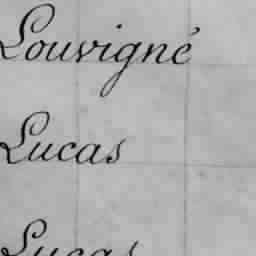 Louvigné
Lucas
Lucas